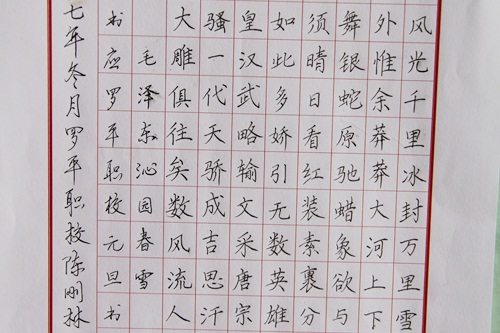 风光千里冰封万里雪
外惟余莽莽大河上下
舞银蛇原驰蜡象欲与
须晴日看红装素裹分
如此多娇引无数英雄
皇汉武略输文采唐宗
骚一代天骄成吉思汗
大雕俱往矣数风流人
毛泽东沁园春雪
书应罗平职校元旦书
七年冬月罗平职校陈刚林